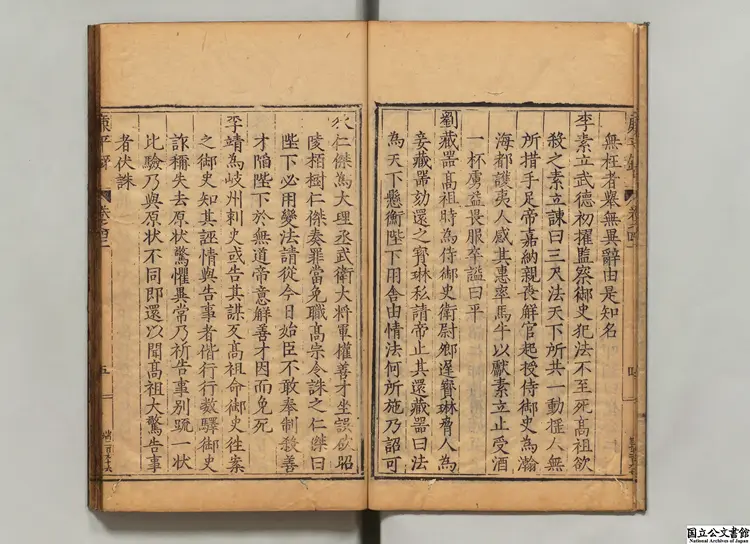 無枉者舉無異辭由是知名
李素立武德初擢監察御史犯法不至死高祖欲
殺之素立諫曰三尺法天下所共一動揺人無
所措手足帝嘉納親喪解官起授侍御史為瀚
海都護夷人感其惠率馬牛以獻素立止受酒
一杯虜益畏服卒謚曰平
劉藏器高祖時為侍御史衛尉鄉遲寳琳脅人為
妾藏器劾還之寳琳私請帝止其還藏器曰法
為天下懸衡陛下用舎由情法何所施乃詔可
仁傑為大理丞武衛大將軍權善才坐誤斫昭
陵栢樹仁傑奏罪當免職高宗令誅之仁傑曰
陛下必用變法請從今日始臣不敢奉制殺善
才陷陛下於無道帝意解善才因而免死
李靖為岐州刺史或告其謀反高祖命御史徃案
之御史知其誣情與告事者偕行行數驛御史
詐稱失去原狀驚懼異常乃祈告事别䟽一状
比驗乃與原状不同即還以聞高祖大驚告事
者伏誅
五
国立公文書館
National Archives of Japan